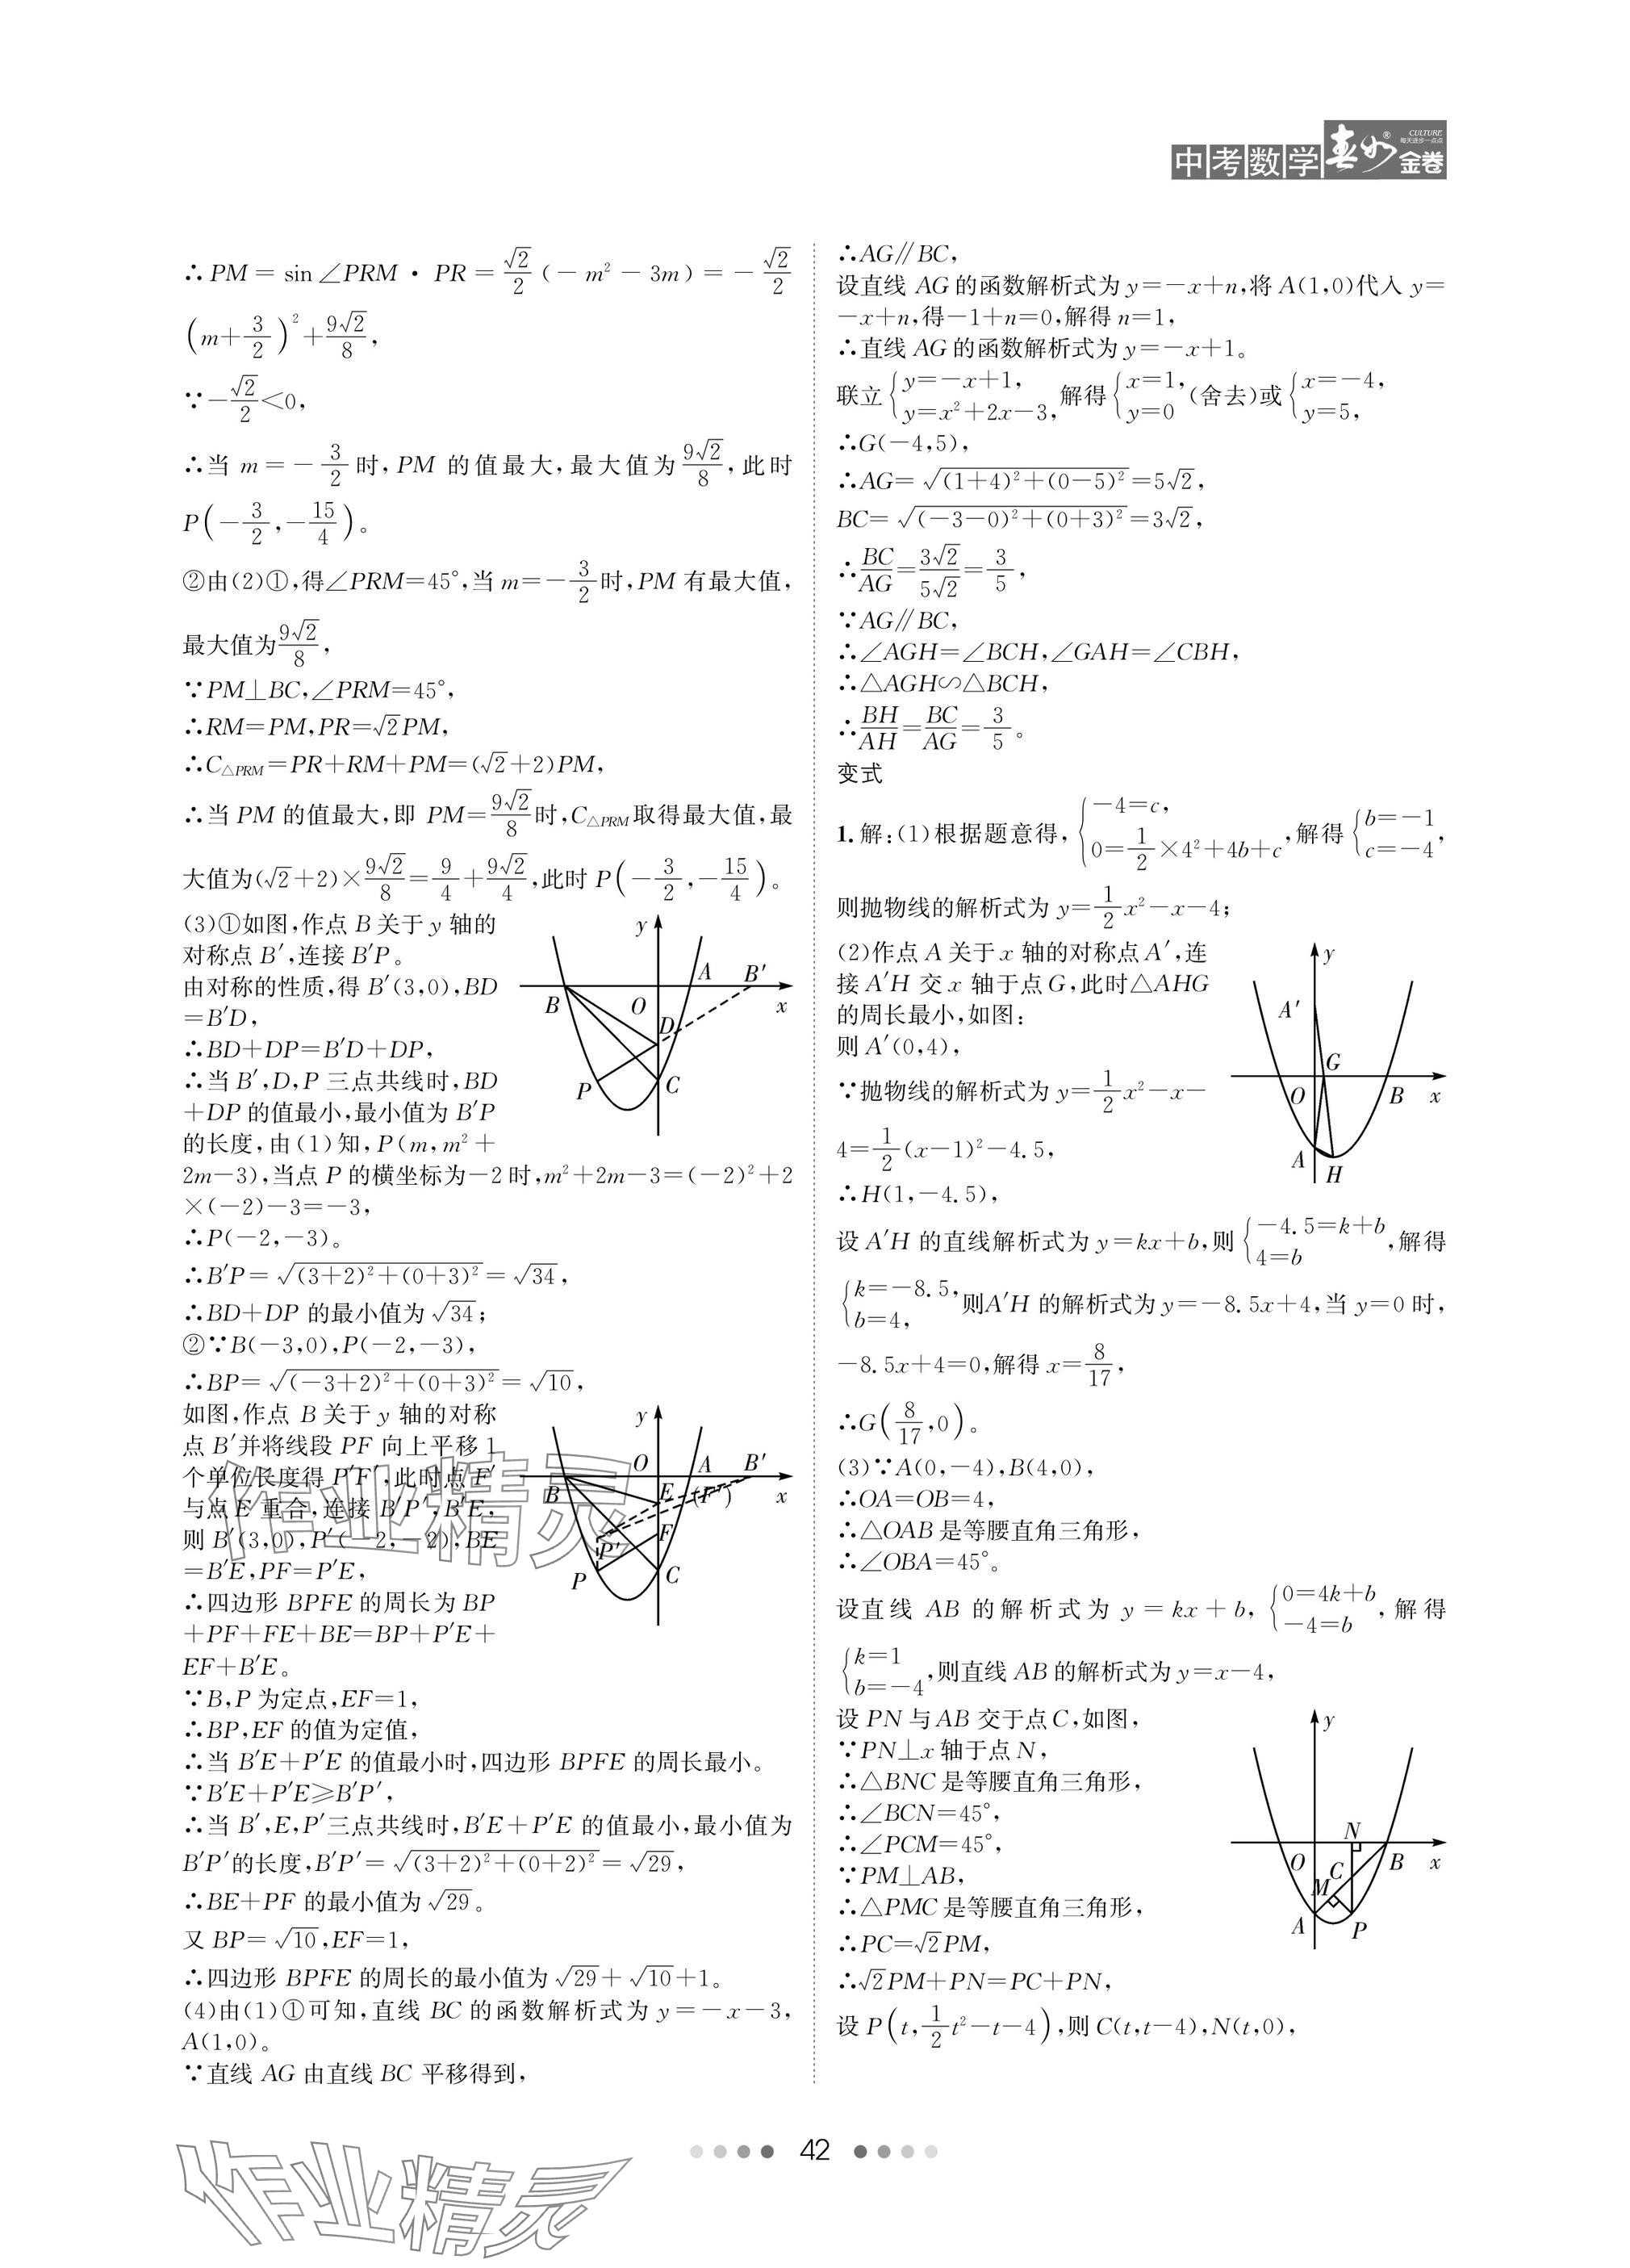 中考数学 春如® CULTURE 每天进步一点点 金卷
∴PM=sin∠PRM·PR=\frac{√2}{2}(-m²-3m)=-\frac{√2}{2}
(m+\frac{3}{2})²+\frac{9√2}{8},
∵-\frac{√2}{2}<0,
∴当 m=-\frac{3}{2}时,PM 的值最大,最大值为\frac{9√2}{8},此时
P(-\frac{3}{2},-\frac{15}{4})。
②由(2)①,得∠PRM=45°,当 m=-\frac{3}{2}时,PM 有最大值,
最大值为\frac{9√2}{8},
∵PM⊥BC,∠PRM=45°,
∴RM=PM,PR=√2PM,
∴C△PRM=PR+RM+PM=(√2+2)PM,
∴当 PM 的值最大,即 PM=\frac{9√2}{8}时,C△PRM取得最大值,最
大值为(√2+2)×\frac{9√2}{8}=\frac{9}{4}+\frac{9√2}{4},此时 P(-\frac{3}{2},-\frac{15}{4})。
(3)①如图,作点 B 关于 y 轴的
对称点 B′,连接 B′P。
由对称的性质,得 B′(3,0),BD
=B′D,
∴BD+DP=B′D+DP,
∴当 B′,D,P 三点共线时,BD
+DP 的值最小,最小值为 B′P
的长度,由(1)知,P(m,m²+
y
A
B′
B
O
x
D
P
C
2m-3),当点 P 的横坐标为-2 时,m²+2m-3=(-2)²+2
×(-2)-3=-3,
∴P(-2,-3)。
∴B′P=√((3+2)²+(0+3)²)=√34,
∴BD+DP 的最小值为√34;
②∵B(-3,0),P(-2,-3),
∴BP=√((-3+2)²+(0+3)²)=√10,
如图,作点 B 关于 y 轴的对称
点 B′并将线段 PF 向上平移 1
个单位长度得 P′F′,此时点 F′
与点 E 重合,连接 B′P′,B′E,
则 B′(3,0),P′(-2,-2),BE
=B′E,PF=P′E,
∴四边形 BPFE 的周长为 BP
+PF+FE+BE=BP+P′E+
EF+B′E。
y
O
A
B′
B
E
(F′)
x
F
P′
P
C
∵B,P 为定点,EF=1,
∴BP,EF 的值为定值,
∴当 B′E+P′E 的值最小时,四边形 BPFE 的周长最小。
∵B′E+P′E≥B′P′,
∴当 B′,E,P′三点共线时,B′E+P′E 的值最小,最小值为
B′P′的长度,B′P′=√((3+2)²+(0+2)²)=√29,
∴BE+PF 的最小值为√29。
又 BP=√10,EF=1,
∴四边形 BPFE 的周长的最小值为√29+√10+1。
(4)由(1)①可知,直线 BC 的函数解析式为 y=-x-3,
A(1,0)。
∵直线 AG 由直线 BC 平移得到,
∴AG∥BC,
设直线 AG 的函数解析式为 y=-x+n,将 A(1,0)代入 y=
-x+n,得-1+n=0,解得 n=1,
∴直线 AG 的函数解析式为 y=-x+1。
联立{y=-x+1, y=x²+2x-3,解得{x=1, y=0(舍去)或{x=-4, y=5,
∴G(-4,5),
∴AG=√((1+4)²+(0-5)²)=5√2,
BC=√((-3-0)²+(0+3)²)=3√2,
∴\frac{BC}{AG}=\frac{3√2}{5√2}=\frac{3}{5},
∵AG∥BC,
∴∠AGH=∠BCH,∠GAH=∠CBH,
∴△AGH∽△BCH,
∴\frac{BH}{AH}=\frac{BC}{AG}=\frac{3}{5}。
变式
1.解:(1)根据题意得,{-4=c, 0=\frac{1}{2}×4²+4b+c,解得{b=-1 c=-4,
则抛物线的解析式为 y=\frac{1}{2}x²-x-4;
(2)作点 A 关于 x 轴的对称点 A′,连
接 A′H 交 x 轴于点 G,此时△AHG
的周长最小,如图:
则 A′(0,4),
∵抛物线的解析式为 y=\frac{1}{2}x²-x-
4=\frac{1}{2}(x-1)²-4.5,
∴H(1,-4.5),
y
A′
G
O
B
x
A
H
设 A′H 的直线解析式为 y=kx+b,则{-4.5=k+b 4=b,解得
{k=-8.5, b=4,则A′H 的解析式为 y=-8.5x+4,当 y=0 时,
-8.5x+4=0,解得 x=\frac{8}{17},
∴G(\frac{8}{17},0)。
(3)∵A(0,-4),B(4,0),
∴OA=OB=4,
∴△OAB 是等腰直角三角形,
∴∠OBA=45°。
设直线 AB 的解析式为 y=kx+b,{0=4k+b -4=b,解得
{k=1 b=-4,则直线 AB 的解析式为 y=x-4,
设 PN 与 AB 交于点 C,如图,
∵PN⊥x 轴于点 N,
∴△BNC 是等腰直角三角形,
∴∠BCN=45°,
∴∠PCM=45°,
∵PM⊥AB,
∴△PMC 是等腰直角三角形,
∴PC=√2PM,
∴√2PM+PN=PC+PN,
y
N
O
C
B
x
M
A
P
设 P(t,\frac{1}{2}t²-t-4),则 C(t,t-4),N(t,0),
42
作业精灵
作业精灵